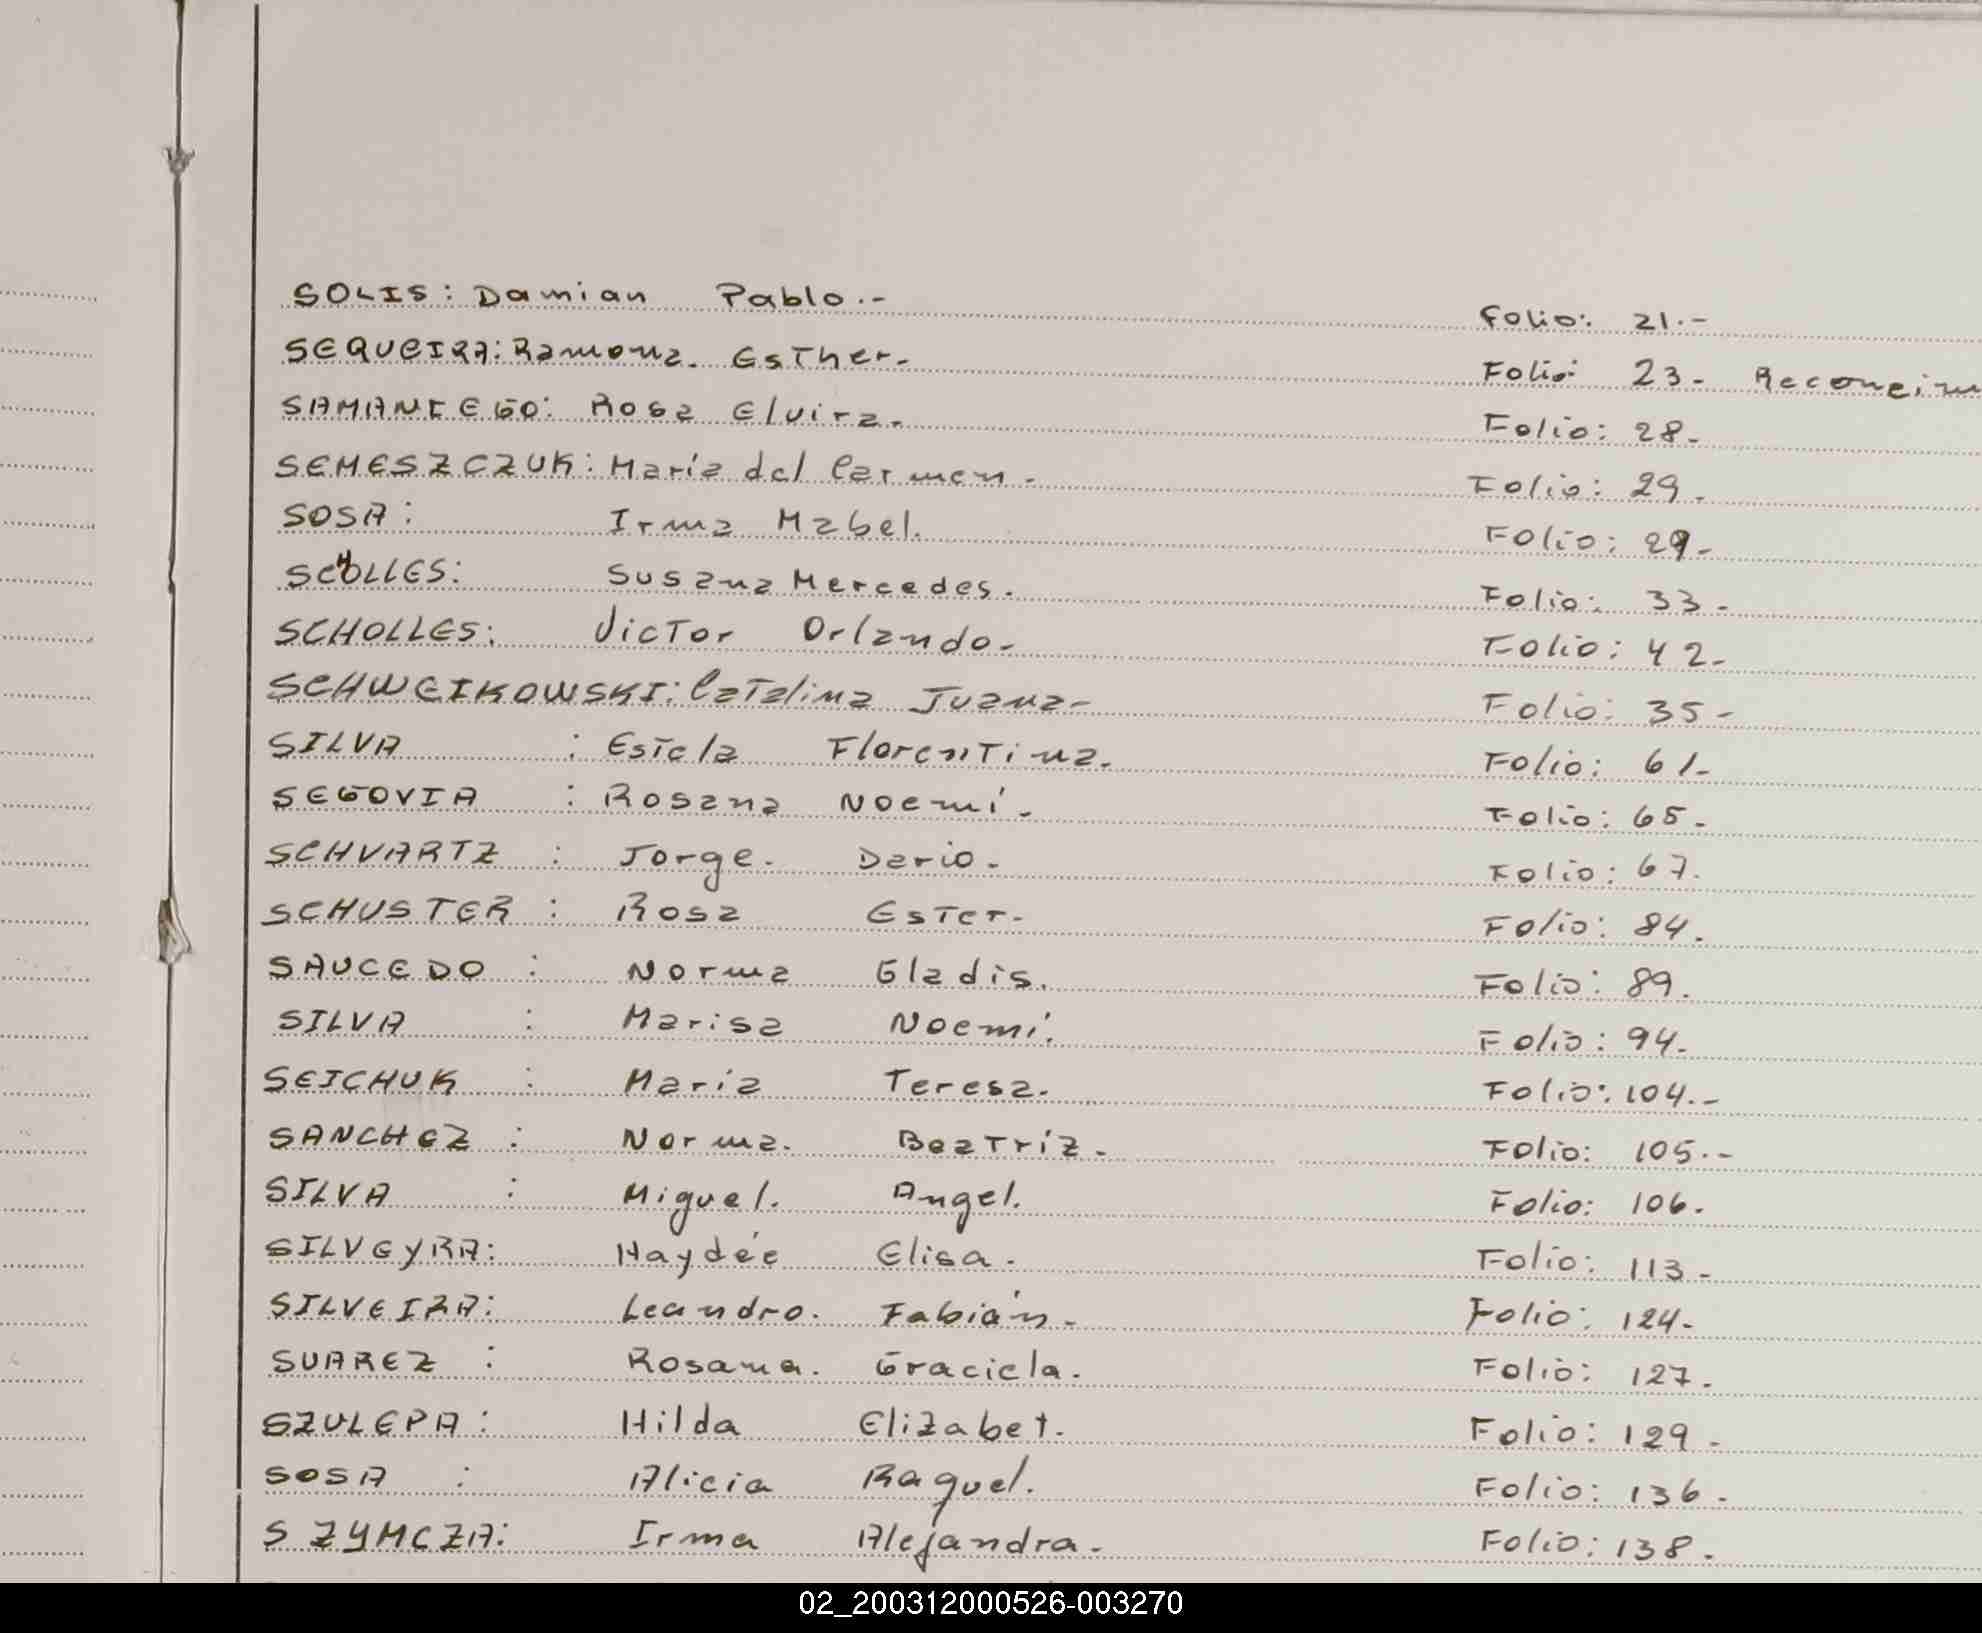 SOLIS: Damian Pablo.- Folio: 21.-
SEQUEIRA: Ramona. Esther- Folio: 23- Reconcim
SAMANIEGO: Rosa Elvira. Folio: 28-
SEMESZCZUK: María del Carmen. Folio: 29.
SOSA: Irma Mabel. Folio: 29-
SCHOLLES: Susana Mercedes. Folio: 33-
SCHOLLES: Victor Orlando- Folio: 42-
SCHWEIKOWSKI: Catalina Juana- Folio: 35-
SILVA : Estela Florentina. Folio: 61-
SEGOVIA : Rosana Noemí. Folio: 65-
SCHVARTZ : Jorge. Dario. Folio: 67.
SCHUSTER : Rosa Ester. Folio: 84.
SAUCEDO : Norma Gladis. Folio: 89.
SILVA : Marisa Noemí. Folio: 94-
SEICHUK : María Teresa. Folio: 104.-
SANCHEZ : Norma. Beatríz. Folio: 105.-
SILVA : Miguel. Angel. Folio: 106.
SILVEYRA: Haydée Elisa. Folio: 113-
SILVEIRA: Leandro. Fabián- Folio: 124-
SUAREZ : Rosana. Graciela. Folio: 127.
SZULEPA: Hilda Elizabet. Folio: 129-
SOSA : Alicia Raquel. Folio: 136.
SZYMCZA: Irma Alejandra- Folio: 138.
02_200312000526-003270